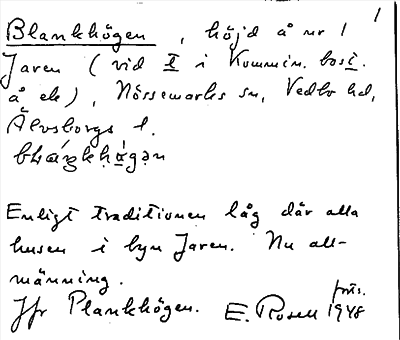 1
Blankhögen, höjd å nr 1
Jaren (vid I i Kommin. bost.
å ek), Nössemarks sn, Vedbo hd,
Älvsborgs l.
Enligt traditionen låg där alla
husen i byn Jaren. Nu all-
männing.
Jfr Plankhögen. E. Rosell 1948